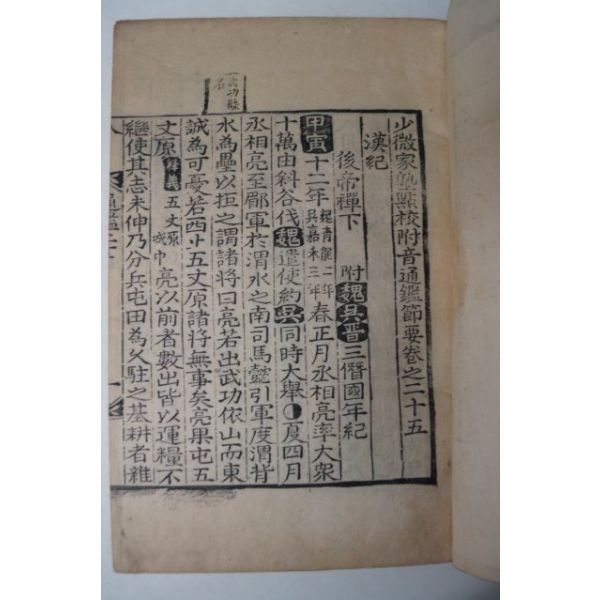 少微家塾點校附音通鑑節要卷之二十五
漢紀
後帝禪下 附魏吳晋三僭國年紀
甲寅十二年魏青龍二年吳嘉禾三年春正月丞相亮率大衆
十萬由斜谷伐魏遣使約吳同時大擧夏四月
丞相亮至郿軍於渭水之南司馬懿引軍度渭背
水為壘以拒之謂諸將曰亮若出武功依山而東
誠為可憂若西上五丈原諸將無事矣亮果屯五
丈原 五丈原 亮以前者數出皆以運糧不
繼使其志未伸乃分兵屯田為久駐之基耕者雜